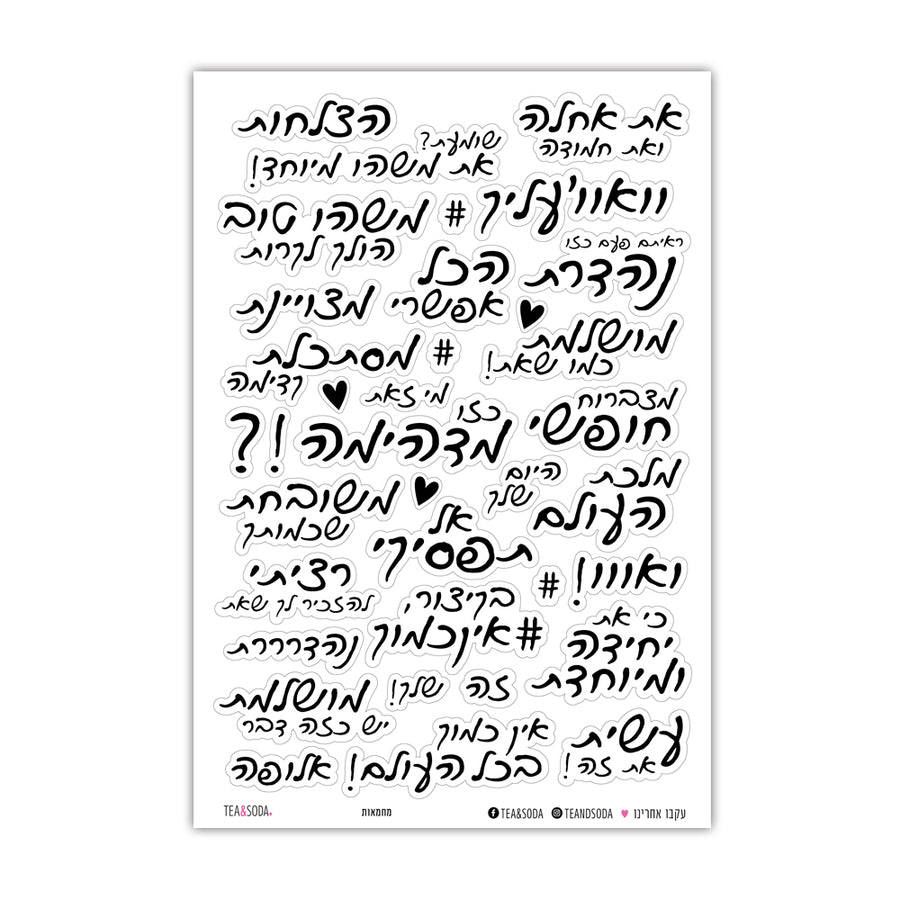 את אחלה
ואת חמודה
הצלחות
שומעת?
את משהו מיוחד!
וואוו'עליך
#
משהו טוב
הולך לקרות
ראיתם פעם כזו
נהדרת
הכל
אפשרי
מצויינת
מושלמת
כמו שאת!
#
מסתכלת
קדימה
מי זאת
כזו
מדהימה
!?
מצברוח
חופשי
מלכת
העולם
היום
שלך
משובחת
שכמותך
אל
תפסיקי
ואווו!
#
רציתי
להזכיר לך שאת
בקיצור,
#אינכמוך
כי את
יחידה
ומיוחדת
נהדרררת
זה
שלך!
מושלמת
יש כזה דבר
אין כמוך
בכל העולם!
עשית
את זה!
אלופה
TEA&SODA.
מחמאות
TEA&SODA
TEANDSODA
עקבו אחרינו